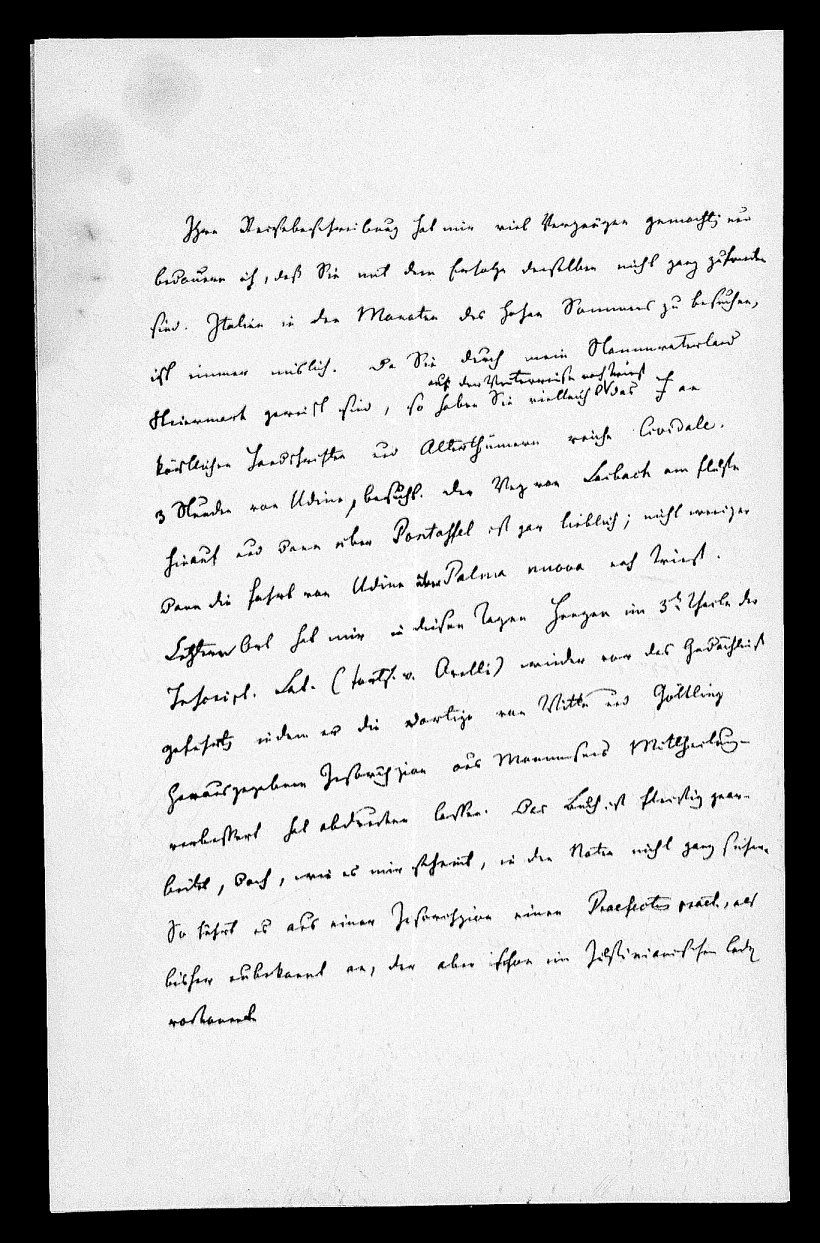 Ihre Reisebeschreibung hat mir viel Vergnügen gemacht; nur
bedauere ich, daß Sie mit dem Erfolge derselben nicht ganz zufrieden
sind. Italien in den Monaten des hohen Sommers zu besuchen,
ist immer mislich. Da Sie durch mein Stammvaterland
auf der Weiterreise nach Triest
Steiermark gereist sind, so haben Sie vielleicht das an
köstlichen Handschriften und Alterthümern reiche Cividale,
3 Stunden von Udine, besucht. Der Weg von Laibach am Flusse
hinauf und dann über Pontaffel ist gar lieblich; nicht weniger
dann die Fahrt von Udine über Palma nuova nach Triest.
Letztern Ort hat mir in diesen Tagen Henzen im 3n Theile der
Inscript. Lat. (Forts. v. Orelli) wieder vor das Gedächtniß
geführt, indem er die dortige von Witte und Göttling
herausgegebene Inschrift aus Mommsens Mittheilung
verbessert hat abdrucken lassen. Das Buch ist fleissig gear-
beitet, doch, wie es mir scheint, in den Noten nicht ganz sicher.
So führt er aus einer Inscription einen Praefectus praet., als
bisher unbekannt an, der aber schon im Justinianischen Codex
vorkommt.